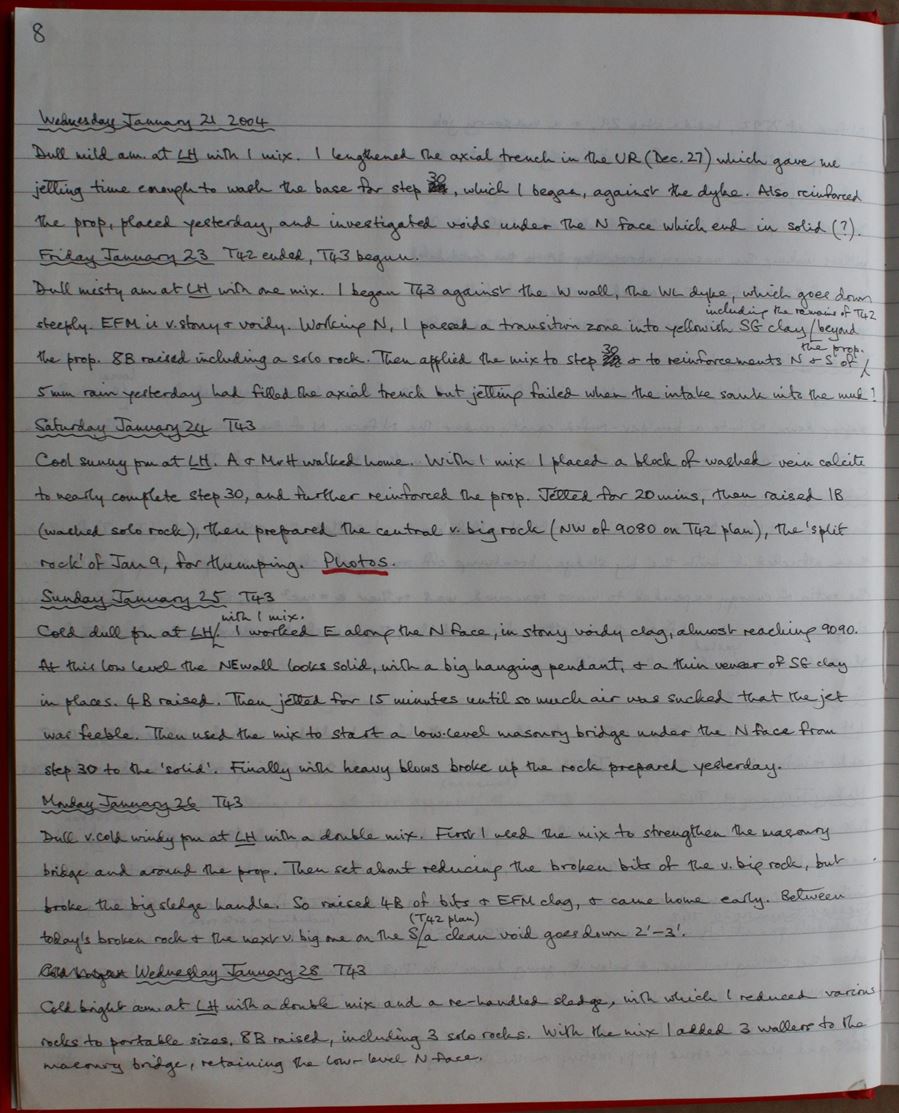 8
Wednesday January 21 2004
Dull mild am. at LH with 1 mix. I lengthened the axial trench in the UR (Dec. 27) which gave me
jetting time enough to wash the base for step 30, which I began, against the dyke. Also reinforced
the prop, placed yesterday, and investigated voids under the N face which end in solid (?).
Friday January 23 T42 ended, T43 begun.
Dull misty am at LH with one mix. I began T43 against the W wall, the WL dyke, which goes down
including the remains of T42
steeply. EFM is v. stony & voidy. Working N, I passed a transition zone into yellowish SG clay / beyond
the prop.
the prop. 8B raised including a solo rock. Then applied the mix to step 30 & to reinforcements N & S of /
5 mm rain yesterday had filled the axial trench but jetting failed when the intake sank into the muck!
Saturday January 24 T43
Cool sunny pm at LH. A & MrH walked home. With 1 mix I placed a block of washed vein calcite
to nearly complete step 30, and further reinforced the prop. Jetted for 20 mins, then raised 1B
(washed solo rock), then prepared the central v. big rock (NW of 9080 on T42 plan), the 'split
rock' of Jan 9, for thumping. Photos.
Sunday January 25 T43
with 1 mix.
Cold dull pm at LH/ I worked E along the N face, in stony voidy clag, almost reaching 9090.
At this low level the NE wall looks solid, with a big hanging pendant, & a thin veneer of SG clay
in places. 4B raised. Then jetted for 15 minutes until so much air was sucked that the jet
was feeble. Then used the mix to start a low-level masonry bridge under the N face from
step 30 to the 'solid'. Finally with heavy blows broke up the rock prepared yesterday.
Monday January 26 T43
Dull v. cold windy pm at LH with a double mix. First I used the mix to strengthen the masonry
bridge and around the prop. Then set about reducing the broken bits of the v. big rock, but
broke the big sledge handle. So raised 4B of bits & EFM clag, & came home early. Between
(T42 plan)
today's broken rock & the next v. big one on the S/a clean void goes down 2'-3'.
Wednesday January 28 T43
Cold bright am. at LH with a double mix and a re-handled sledge, with which I reduced various
rocks to portable sizes. 8B raised, including 3 solo rocks. With the mix I added 3 wallers to the
masonry bridge, retaining the low-level N face.